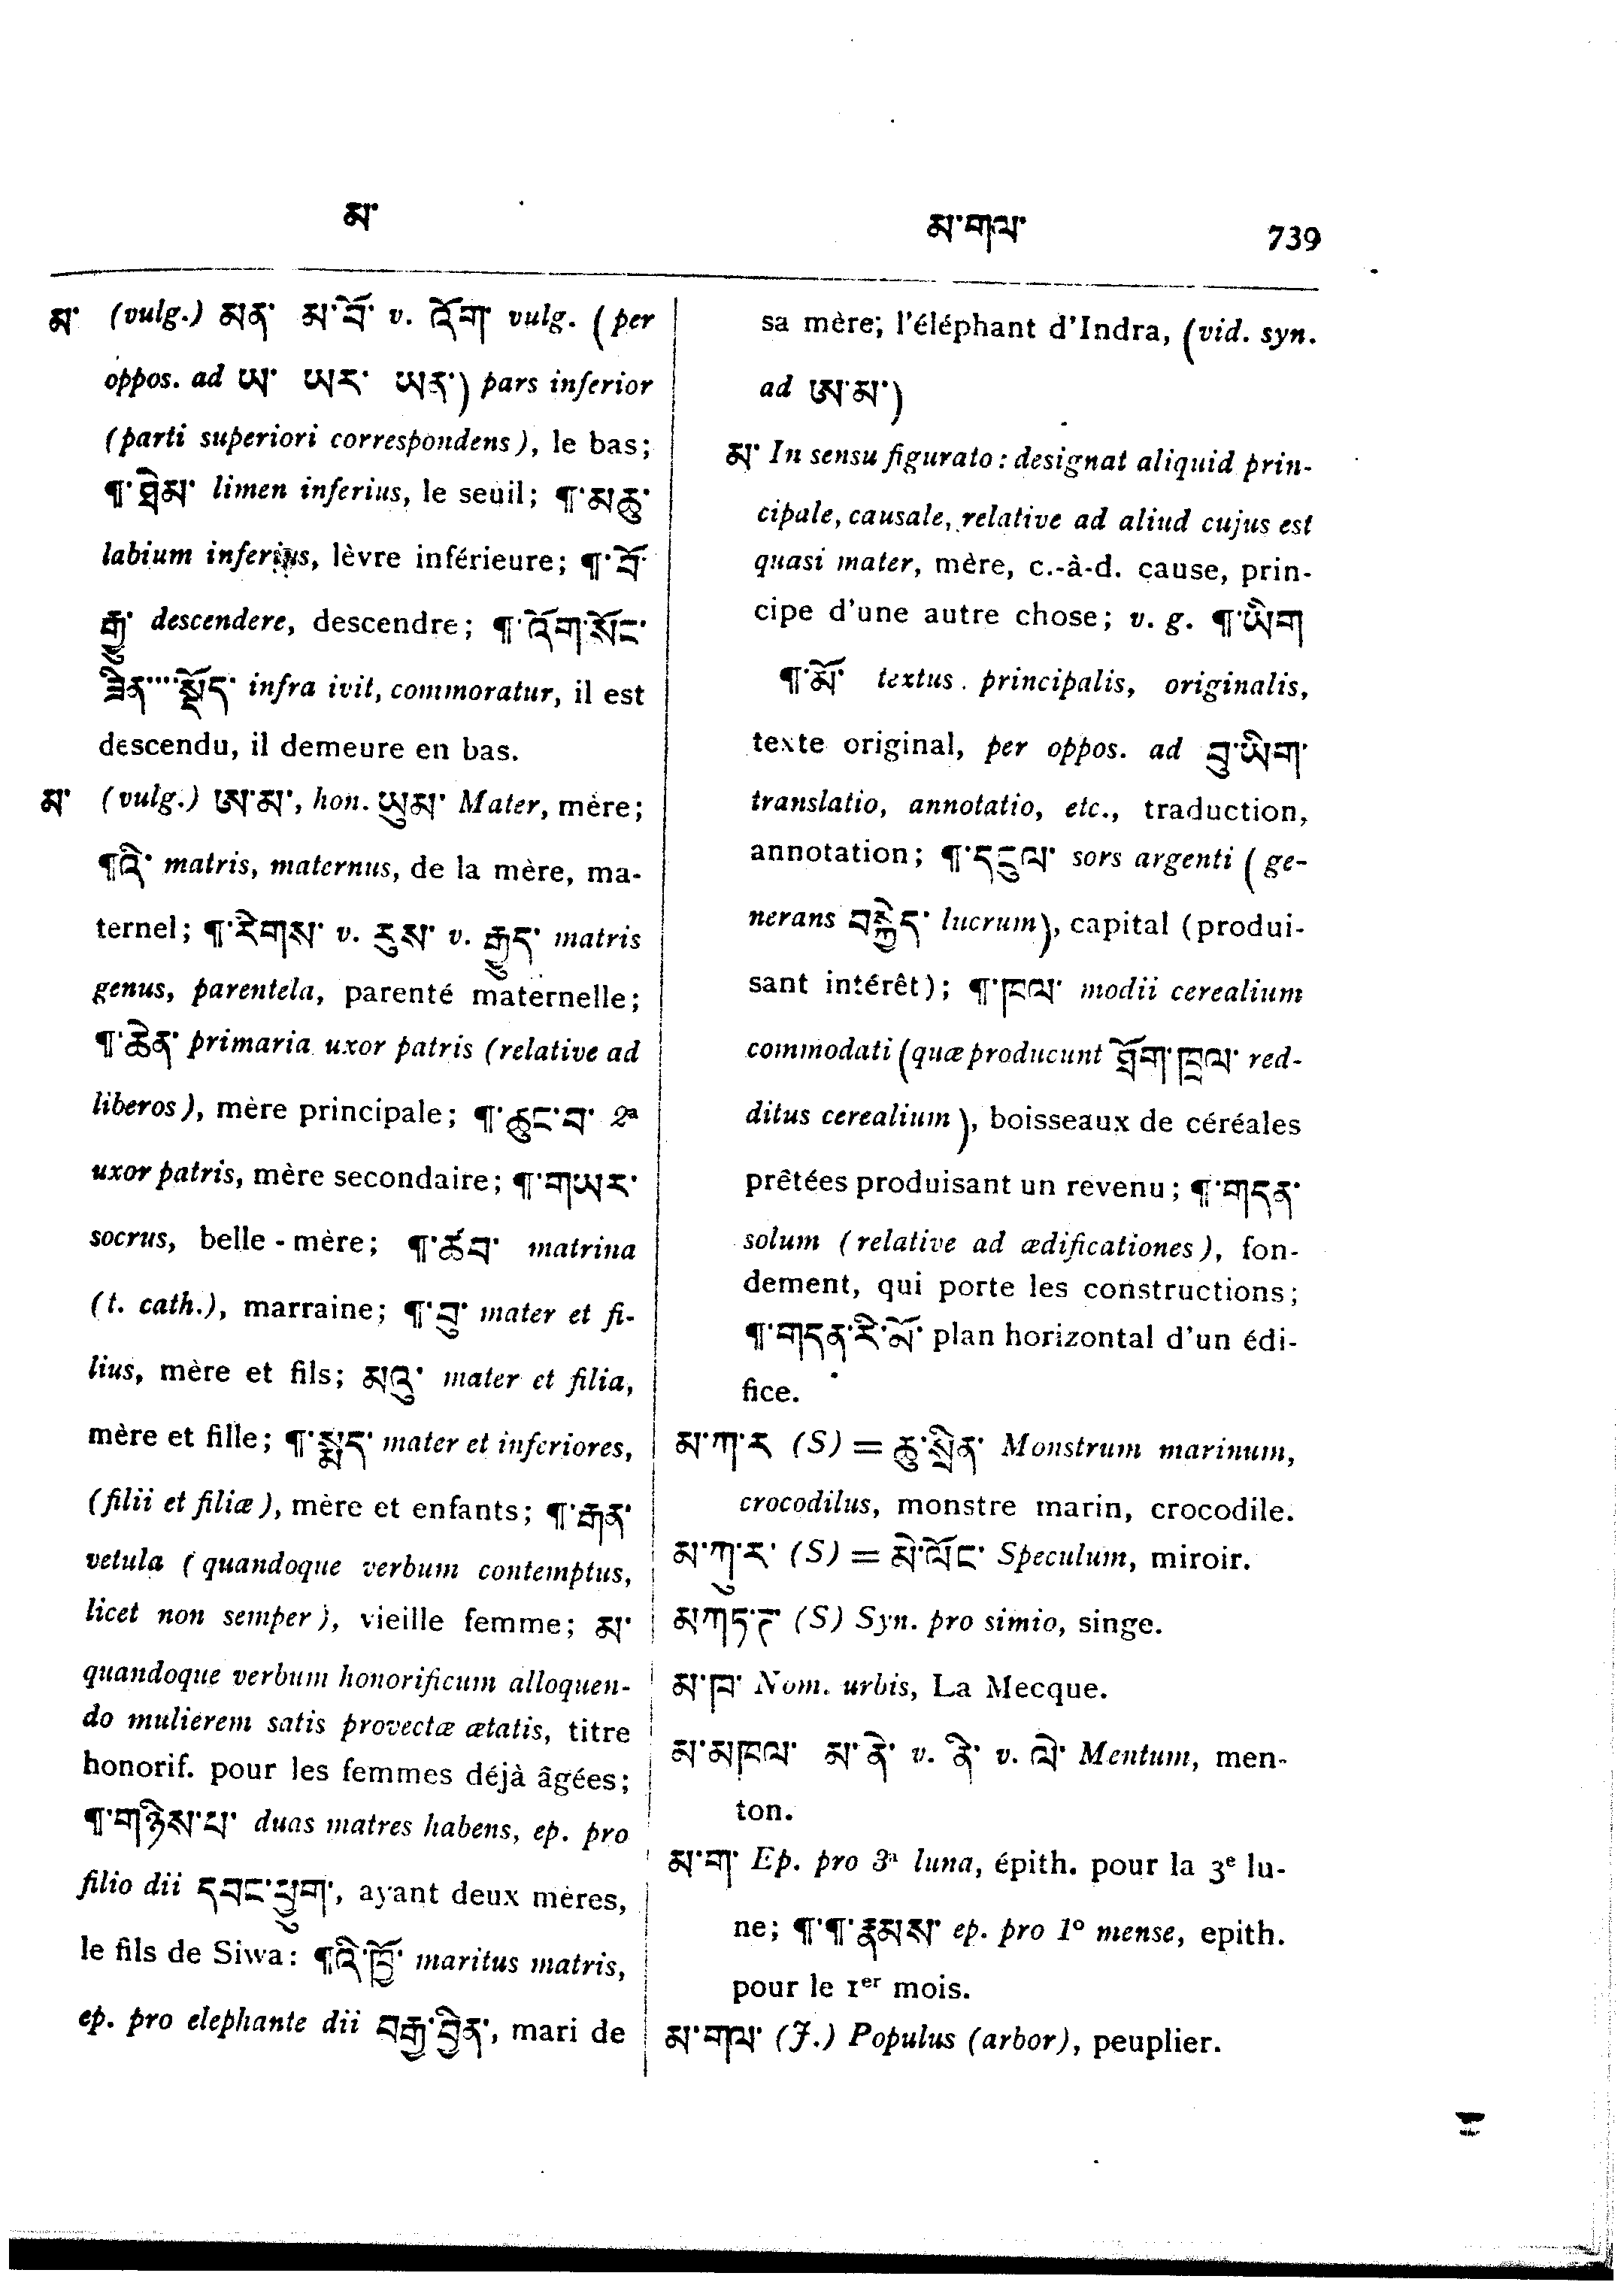 མ་
མ་གལ་ 739
མ་ (vulg.) མན་ མ་བོ་ v. འོག་ vulg. (per
oppos. ad ཡ་ ཡར་ ཡན་) pars inferior
(parti superiori correspondens), le bas;
¶་ཐེམ་ limen inferius, le seuil; ¶་མཆུ་
labium inferius, lèvre inférieure; ¶་བོ་
རྒྱུ་ descendere, descendre; ¶་འོག་སོང་
ཟིན་་་་སྡོད་ infra ivit, commoratur, il est
descendu, il demeure en bas.
མ་ (vulg.) ཨ་མ་, hon. ཡུམ་ Mater, mère;
¶འི་ matris, maternus, de la mère, ma-
ternel; ¶་རིགས་ v. རུས་ v. རྒྱུད་ matris
genus, parentela, parenté maternelle;
¶་ཆེན་ primaria uxor patris (relative ad
liberos), mère principale; ¶་ཆུང་བ་ 2ª
uxor patris, mère secondaire; ¶་གཡར་
socrus, belle-mère; ¶་ཚབ་ matrina
(t. cath.), marraine; ¶་བུ་ mater et fi-
lius, mère et fils; མའུ་ mater et filia,
mère et fille; ¶་སྨད་ mater et inferiores,
(filii et filiæ), mère et enfants; ¶་རྒན་
vetula (quandoque verbum contemptus,
licet non semper), vieille femme; མ་
quandoque verbum honorificum alloquen-
do mulierem satis provectæ ætatis, titre
honorif. pour les femmes déjà âgées;
¶་གཉིས་པ་ duas matres habens, ep. pro
filio dii དབང་ཕྱུག་, ayant deux mères,
le fils de Siwa: ¶འི་ཁྱོ་ maritus matris,
ep. pro elephante dii བརྒྱ་བྱིན་, mari de
sa mère; l'éléphant d'Indra, (vid. syn.
ad ཨ་མ་)
མ་ In sensu figurato: designat aliquid prin-
cipale, causale, relative ad aliud cujus est
quasi mater, mère, c.-à-d. cause, prin-
cipe d'une autre chose; v. g. ¶་ཡིག
¶་མོ་ textus principalis, originalis,
texte original, per oppos. ad བུ་ཡིག་
translatio, annotatio, etc., traduction,
annotation; ¶་དངུལ་ sors argenti (ge-
nerans བསྐྱེད་ lucrum), capital (produi-
sant intérêt); ¶་ཁལ་ modii cerealium
commodati (quæ producunt ཐོག་ཁྲལ་ red-
ditus cerealium), boisseaux de céréales
prêtées produisant un revenu; ¶་གདན་
solum (relative ad ædificationes), fon-
dement, qui porte les constructions;
¶་གདན་རི་མོ་ plan horizontal d'un édi-
fice.
མ་ཀ་ར (S) = ཆུ་སྲིན་ Monstrum marinum,
crocodilus, monstre marin, crocodile.
མ་ཀུ་ར་ (S) = མེ་ལོང་ Speculum, miroir.
(S) Syn. pro simio, singe.
མ་ཁ་ Nom. urbis, La Mecque.
མ་མཁལ་ མ་ནེ་ v. ནེ་ v. ལེ་ Mentum, men-
ton.
མ་ག་ Ep. pro 3ª luna, épith. pour la 3e lu-
ne; ¶་¶་རྣམས་ ep. pro 1º mense, epith.
pour le 1er mois.
མ་གལ་ (J.) Populus (arbor), peuplier.